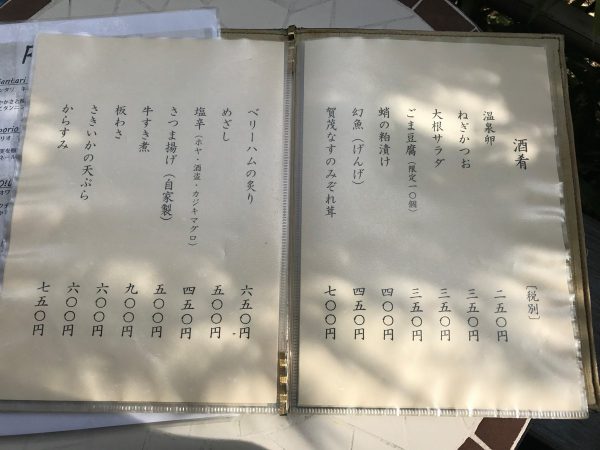 酒肴
〔税別〕
温泉卵 二五〇円
ねぎかつお 三五〇円
大根サラダ 三五〇円
ごま豆腐(限定一〇個) 三五〇円
蛸の粕漬け 四〇〇円
幻魚(げんげ) 四五〇円
賀茂なすのみぞれ茸 七〇〇円
ベリーハムの炙り 六五〇円
めざし 五〇〇円
塩辛(ホヤ・酒盗・カジキマグロ) 四五〇円
さつま揚げ(自家製) 五〇〇円
牛すき煮 九〇〇円
板わさ 六〇〇円
さきいかの天ぷら 六〇〇円
からすみ 七五〇円